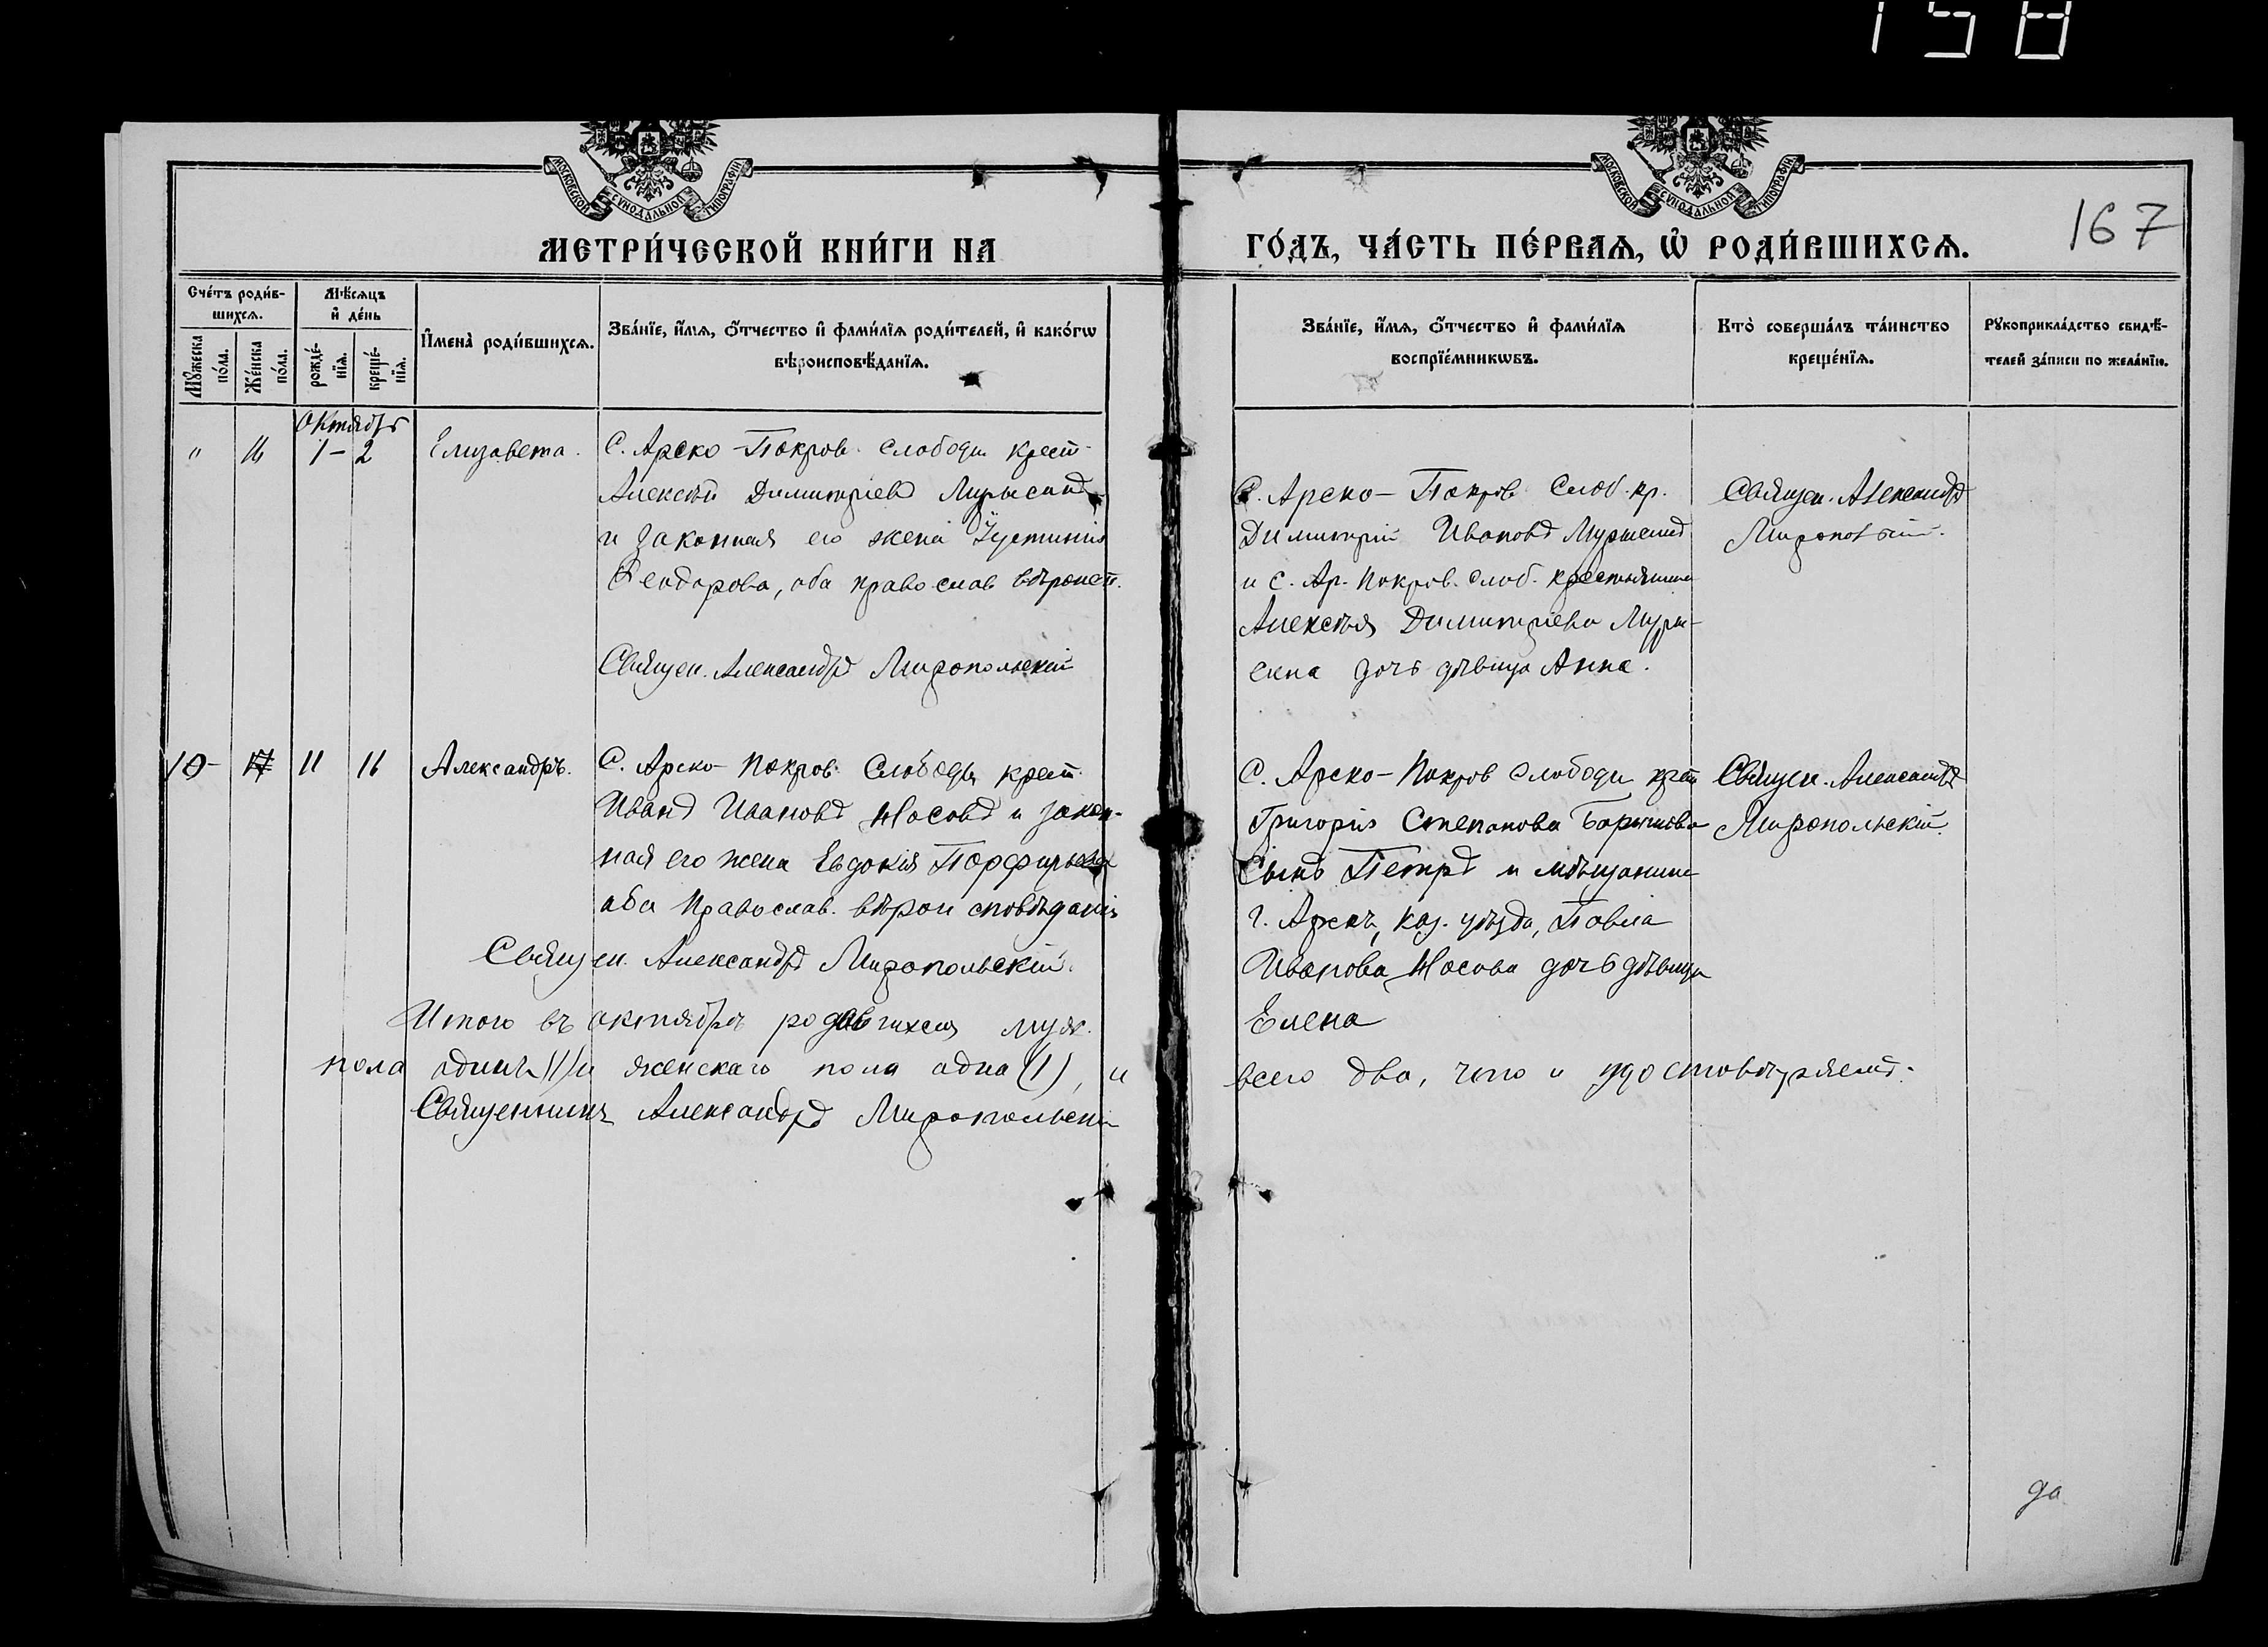 158
МОСКОВСКОЙ СУНОДАЛЬНОЙ ТИПОГРАФІИ
МОСКОВСКОЙ СУНОДАЛЬНОЙ ТИПОГРАФІИ
167
МЕТРИ́ЧЕСКОЙ КНИ́ГИ НА
ГО́ДЪ, ЧА́СТЬ ПЕ́РВАѦ, Ѡ҆ РОДИ́ВШИХСѦ.
Сче́тъ роди́в-
шихсѧ.
Мѣ́сѧцъ
и҆ де́нь
Мꙋ́жеска
по́ла.
Же́нска
по́ла.
рожде́-
нїѧ.
креще́-
нїѧ.
И҆мена̀ роди́вшихсѧ.
Зва́нїе, и҆́мѧ, ѻ҆́тчество и҆ фами́лїѧ роди́телей, и҆ како́гѡ
вѣроисповѣ́данїѧ.
Зва́нїе, и҆́мѧ, ѻ҆́тчество и҆ фами́лїѧ
воспрїе́мникѡвъ.
Кто̀ соверша́лъ та́инство
креще́нїѧ.
Рꙋкоприкла́дство свидѣ́-
телей за́писи по жела́нїю.
Октябрь
" 16 1 - 2 Елизавета.
С. Арско-Покров. слободы крест.
Алексѣй Димитріевъ
и законная его жена Іустинія
Ѳеодорова, оба православ вѣроисп.
Священ. Александръ Миропольскій
С. Арско-Покров. Слоб. кр.
Димитрій Ивановъ
и с. Ар. Покров. слоб. крестьянина
Алексѣя Димитріева Муры-
сина дочь дѣвица Анна.
Священ. Александръ
10 - 17 11 11 Александръ.
С. Арско-Покров. Слободы крест.
Иванъ Ивановъ Носовъ и закон-
ная его жена Евдокія Порфирьева
оба Православ. вѣроисповѣданія
Священ. Александръ Миропольскій.
С. Арско-Покров слободы крест
Григорія Степанова Барышева
Сынъ Петръ и мѣщанина
г. Арска, Каз. уѣзда, Павла
Иванова Носова дочь дѣвица
Елена
Священ. Александръ
Миропольскій.
Итого въ октябрѣ родившихся муж.
пола одинъ (1) и женскаго пола одна (1), и
всего два, что и удостовѣряемъ.
Священникъ Александръ Миропольскій
да